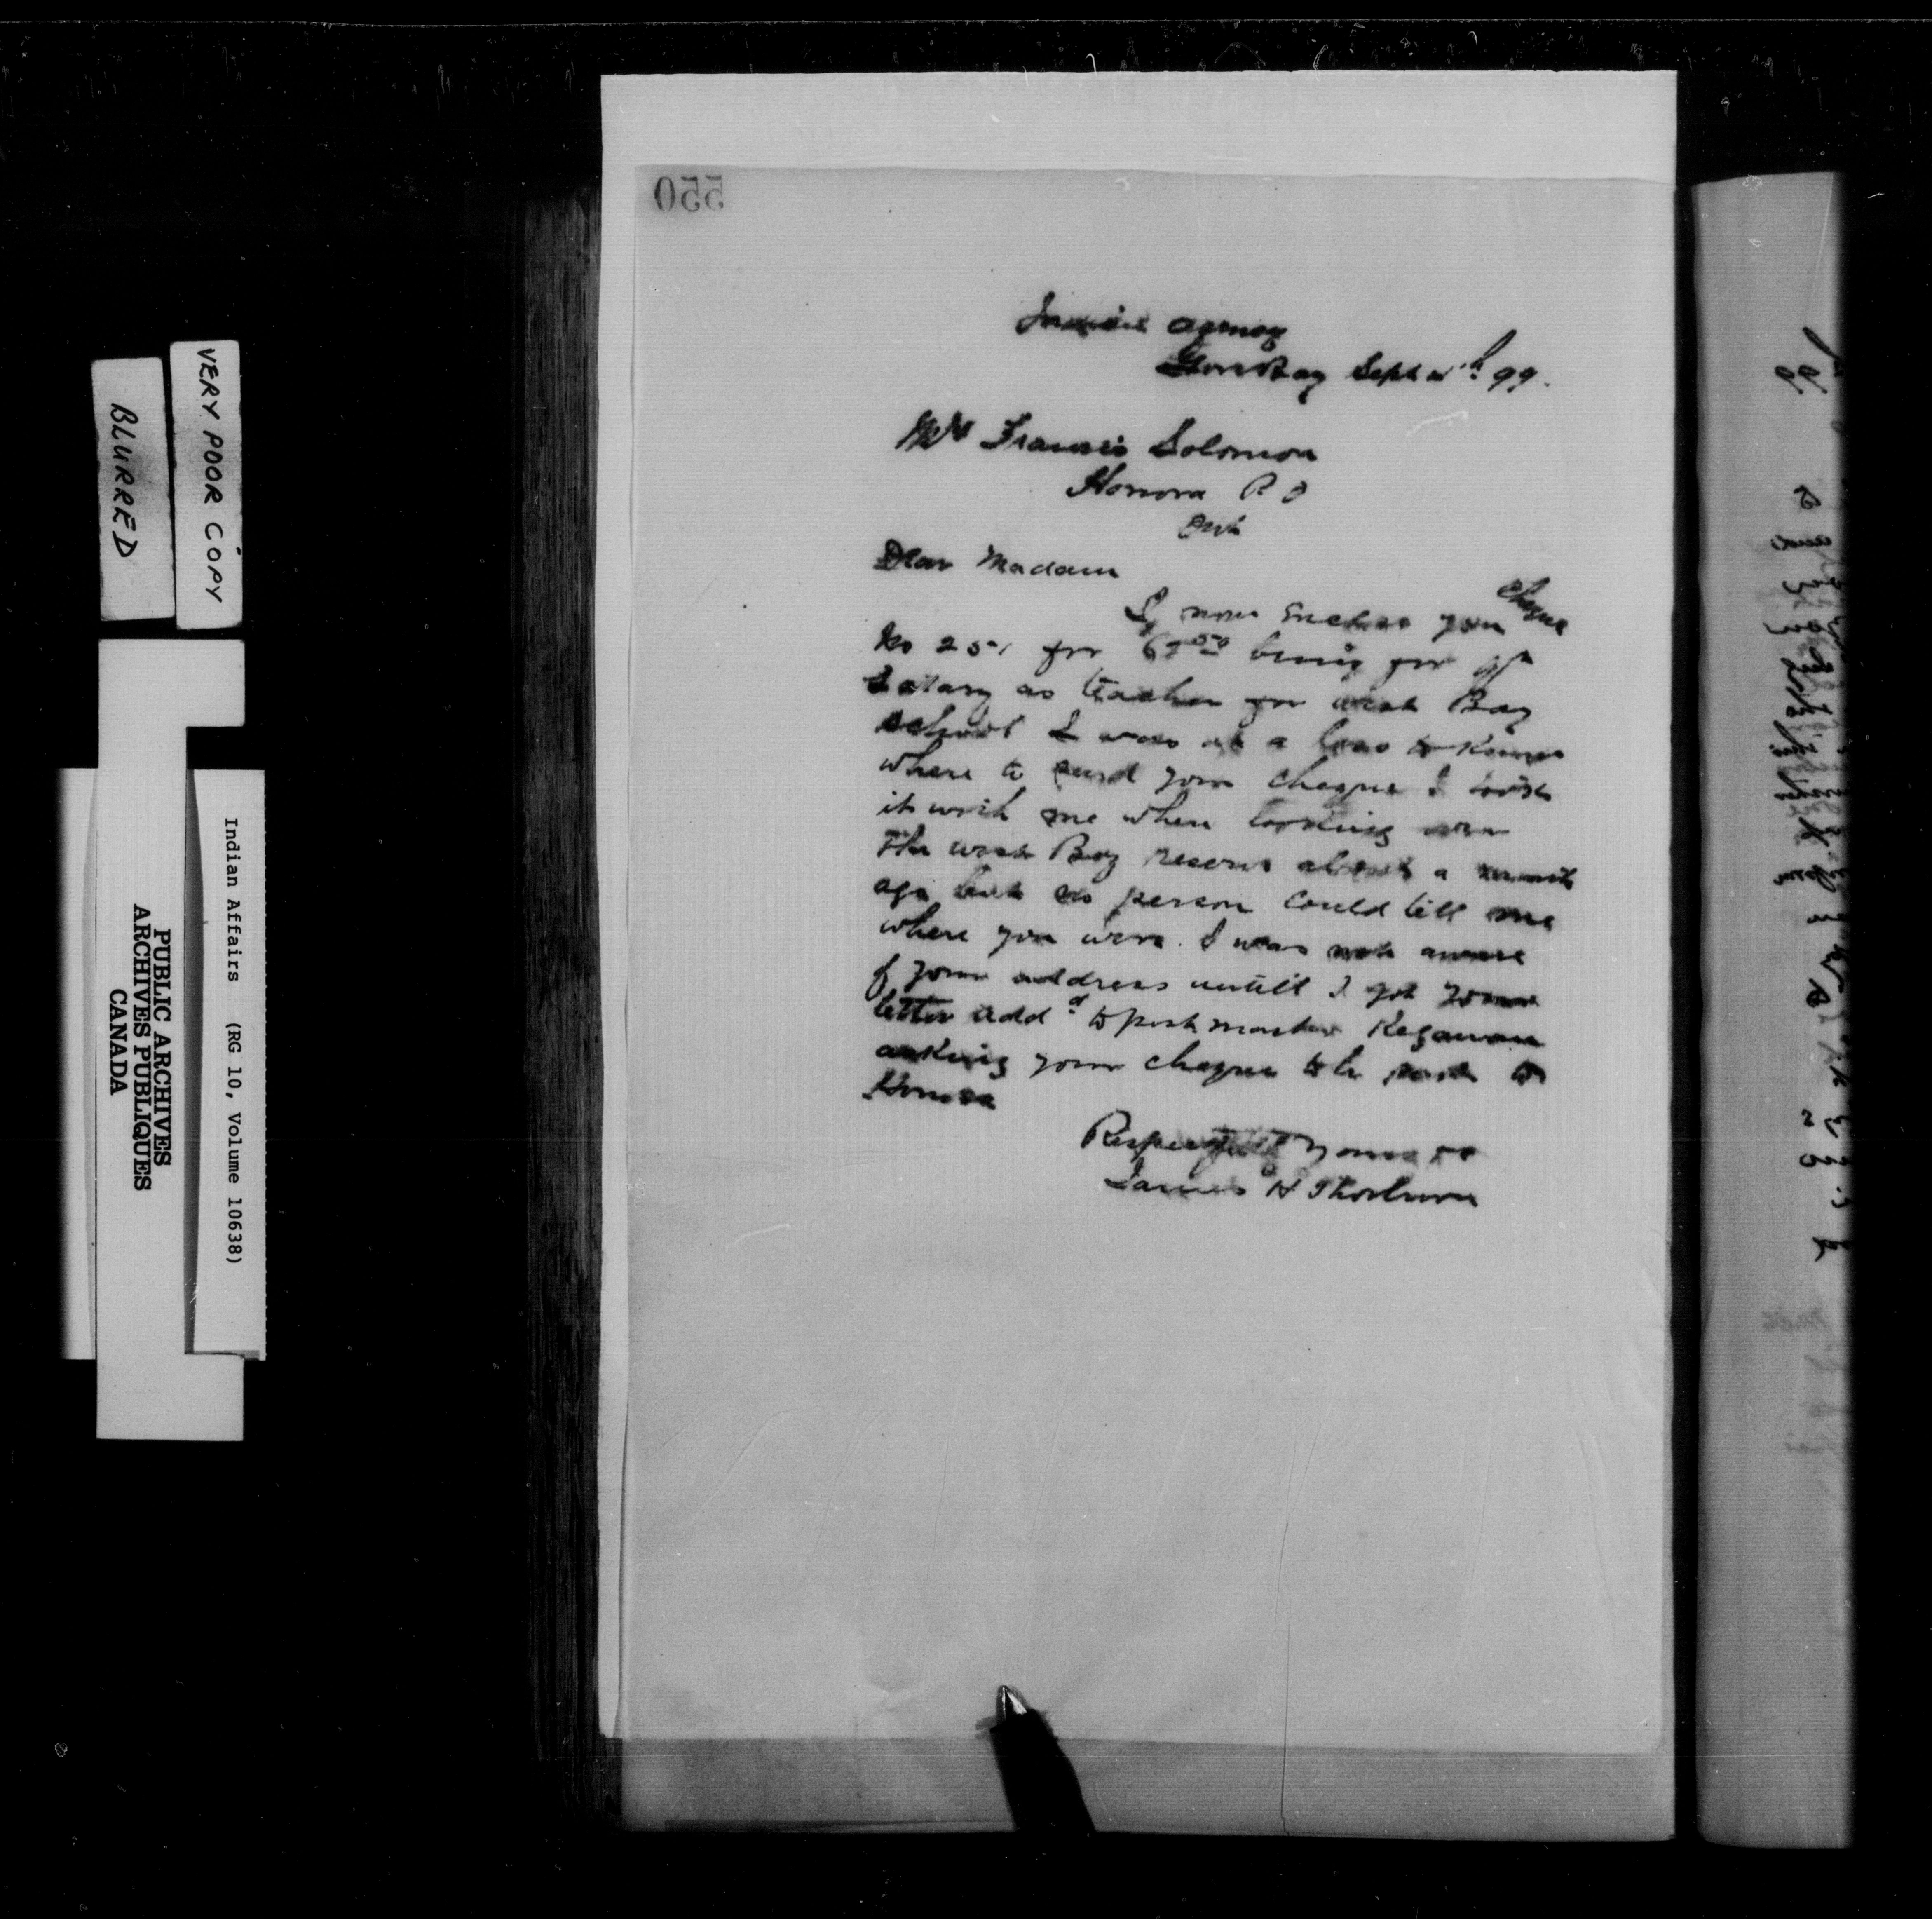 VERY POOR COPY
BLURRED
Indian Affairs (RG 10, Volume 10638)
PUBLIC ARCHIVES
ARCHIVES PUBLIQUES
CANADA
550
Indian agency
Gore Bay Sept 4th 99.
Francis Solomon
Honora P O
Ont
Dear Madam
I now enclose you cheque
No 251 for 67 50 being for
Salary as teacher for west Bay
school I was at a loss to know
where to send your cheque I took
it with me when looking over
The west Bay reserve about a month
ago but no person could tell me
where you were. I was not aware
of your address untill I got your
letter addd to post master Kagawan
asking your cheque to be sent to
Honora
Respectfull yours
James H Thorburn